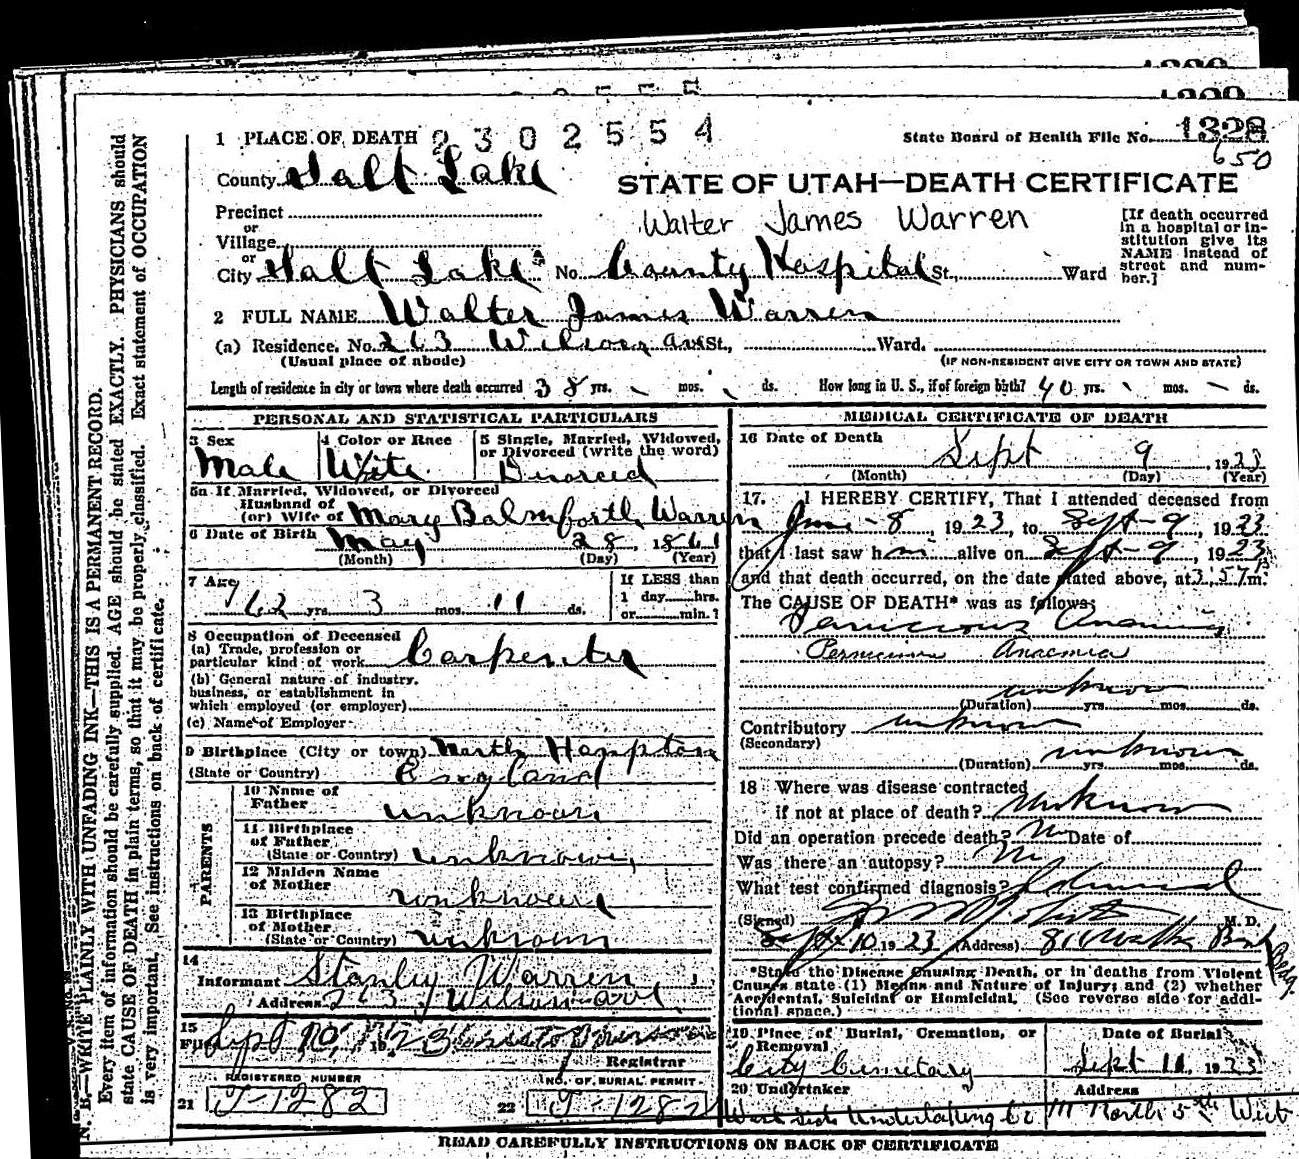 1 PLACE OF DEATH 2302554
State Board of Health File No. 1328
650
County Salt Lake
STATE OF UTAH—DEATH CERTIFICATE
Precinct
or
Village
Walter James Warren
or
City Salt Lake No. County Hospital St., Ward
[If death occurred
in a hospital or in-
stitution give its
NAME instead of
street and num-
ber.]
2 FULL NAME Walter James Warren
(a) Residence. No. 263 Wilson ave St., Ward.
(Usual place of abode)
(IF NON-RESIDENT GIVE CITY OR TOWN AND STATE)
Length of residence in city or town where death occurred 38 yrs. mos. ds.
How long in U. S., if of foreign birth? 40 yrs. mos. ds.
PERSONAL AND STATISTICAL PARTICULARS
3 Sex
Male
4 Color or Race
Wite
5 Single, Married, Widowed,
or Divorced (write the word)
Divorced
5a If Married, Widowed, or Divorced
Husband of
(or) Wife of Mary Balmforth Warren
6 Date of Birth May 28, 1861
(Month) (Day) (Year)
7 Age
62 yrs. 3 mos. 11 ds.
If LESS than
1 day hrs.
or min.?
8 Occupation of Deceased
(a) Trade, profession or
particular kind of work Carpenter
(b) General nature of industry,
business, or establishment in
which employed (or employer)
(c) Name of Employer
9 Birthplace (City or town) North Hampton
(State or Country) England
PARENTS
10 Name of
Father unknown
11 Birthplace
of Father
(State or Country) unknown
12 Maiden Name
of Mother unknown
13 Birthplace
of Mother
(State or Country) unknown
14
Informant Stanley Warren
Address 263 Wilson ave
15
Filed Sept 10, 1923
Registrar
REGISTERED NUMBER
21 J-1282
NO. OF BURIAL PERMIT
22 J-1282
MEDICAL CERTIFICATE OF DEATH
16 Date of Death
Sept 9, 1923
(Month) (Day) (Year)
17. I HEREBY CERTIFY, That I attended deceased from
June-8, 1923, to Sept-9, 1923
that I last saw him alive on Sept-9, 1923,
and that death occurred, on the date stated above, at 3:57 P m.
The CAUSE OF DEATH* was as follows:
Pernicious Anaemia
Pernicious Anaemia
unknown
(Duration) yrs. mos. ds.
Contributory unknown
(Secondary)
unknown
(Duration) yrs. mos. ds.
18 Where was disease contracted
if not at place of death? Unknown
Did an operation precede death? No Date of
Was there an autopsy? No
What test confirmed diagnosis?
(Signed) M. D.
Sept 10 1923 (Address) Walker Bank Bldg.
*State the Disease Causing Death, or in deaths from Violent
Causes state (1) Means and Nature of Injury; and (2) whether
Accidental, Suicidal or Homicidal. (See reverse side for addi-
tional space.)
19 Place of Burial, Cremation, or
Removal
City Cemetary
Date of Burial
Sept 11, 1923
20 Undertaker
West Side Undertaking Co
Address
North 5th West
READ CAREFULLY INSTRUCTIONS ON BACK OF CERTIFICATE
N. B.—WRITE PLAINLY WITH UNFADING INK—THIS IS A PERMANENT RECORD.
Every item of information should be carefully supplied. AGE should be stated EXACTLY. PHYSICIANS should
state CAUSE OF DEATH in plain terms, so that it may be properly classified. Exact statement of OCCUPATION
is very important. See instructions on back of certificate.